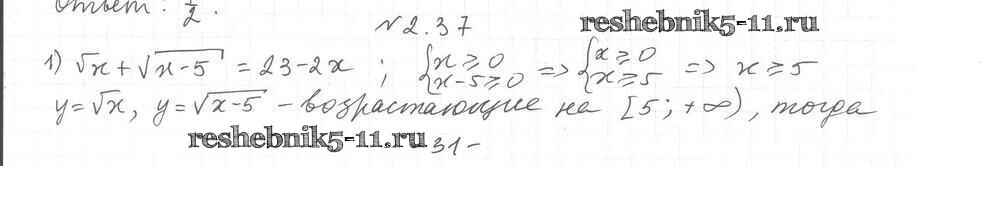 Ответ: 1/2.
№2.37 reshebnik5-11.ru
1) √x + √(x-5) = 23-2x ; {x ≥ 0 x-5 ≥ 0 => {x ≥ 0 x ≥ 5 => x ≥ 5
y=√x, y=√(x-5) - возрастающие на [5; +∞), тогда
reshebnik5-11.ru 31-